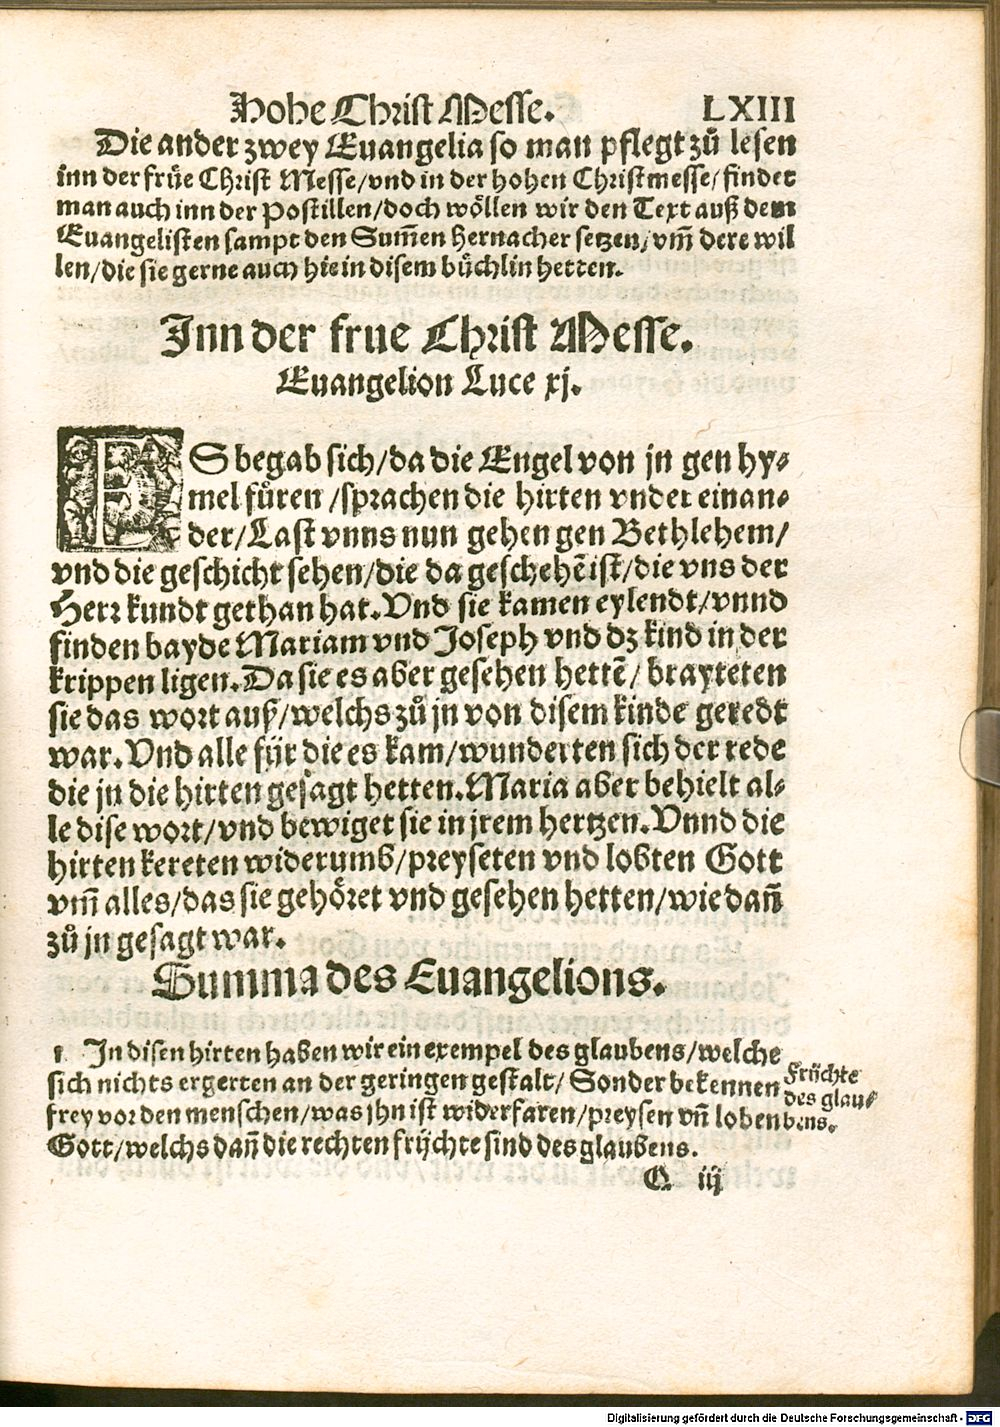 Hohe Christ Messe. LXIII
Die ander zwey Euangelia so man pflegt zů lesen
inn der früe Christ Messe/vnd in der hohen Christmesse/findet
man auch inn der Postillen/doch wöllen wir den Text auß dem
Euangelisten sampt den Sum̃en hernacher setzen/vm̃ dere wil
len/die sie gerne auch hie in disem büchlin hetten.
Inn der frue Christ Messe.
Euangelion Luce xj.
ES begab sich/da die Engel von jn gen hy-
mel füren/sprachen die hirten vnder einan-
der/Last vnns nun gehen gen Bethlehem/
vnd die geschicht sehen/die da geschehẽ ist/die vns der
Herr kundt gethan hat. Vnd sie kamen eylendt/vnnd
finden bayde Mariam vnd Joseph vnd dz kind in der
krippen ligen. Da sie es aber gesehen hettẽ/ brayteten
sie das wort auß/welchs zů jn von disem kinde geredt
war. Vnd alle für die es kam/wunderten sich der rede
die jn die hirten gesagt hetten. Maria aber behielt al-
le dise wort/vnd bewiget sie in jrem hertzen. Vnnd die
hirten kereten widerumb/preyseten vnd lobten Gott
vm̃ alles/das sie gehöret vnd gesehen hetten/wie dañ
zů jn gesagt war.
Summa des Euangelions.
1 In disen hirten haben wir ein exempel des glaubens/welche
sich nichts ergerten an der geringen gestalt/ Sonder bekennen
frey vor den menschen/was jhn ist widerfaren/preysen vñ loben
Gott/welchs dañ die rechten früchte sind des glaubens.
Früchte
des glau-
bens.
Q iij
Digitalisierung gefördert durch die Deutsche Forschungsgemeinschaft - DFG